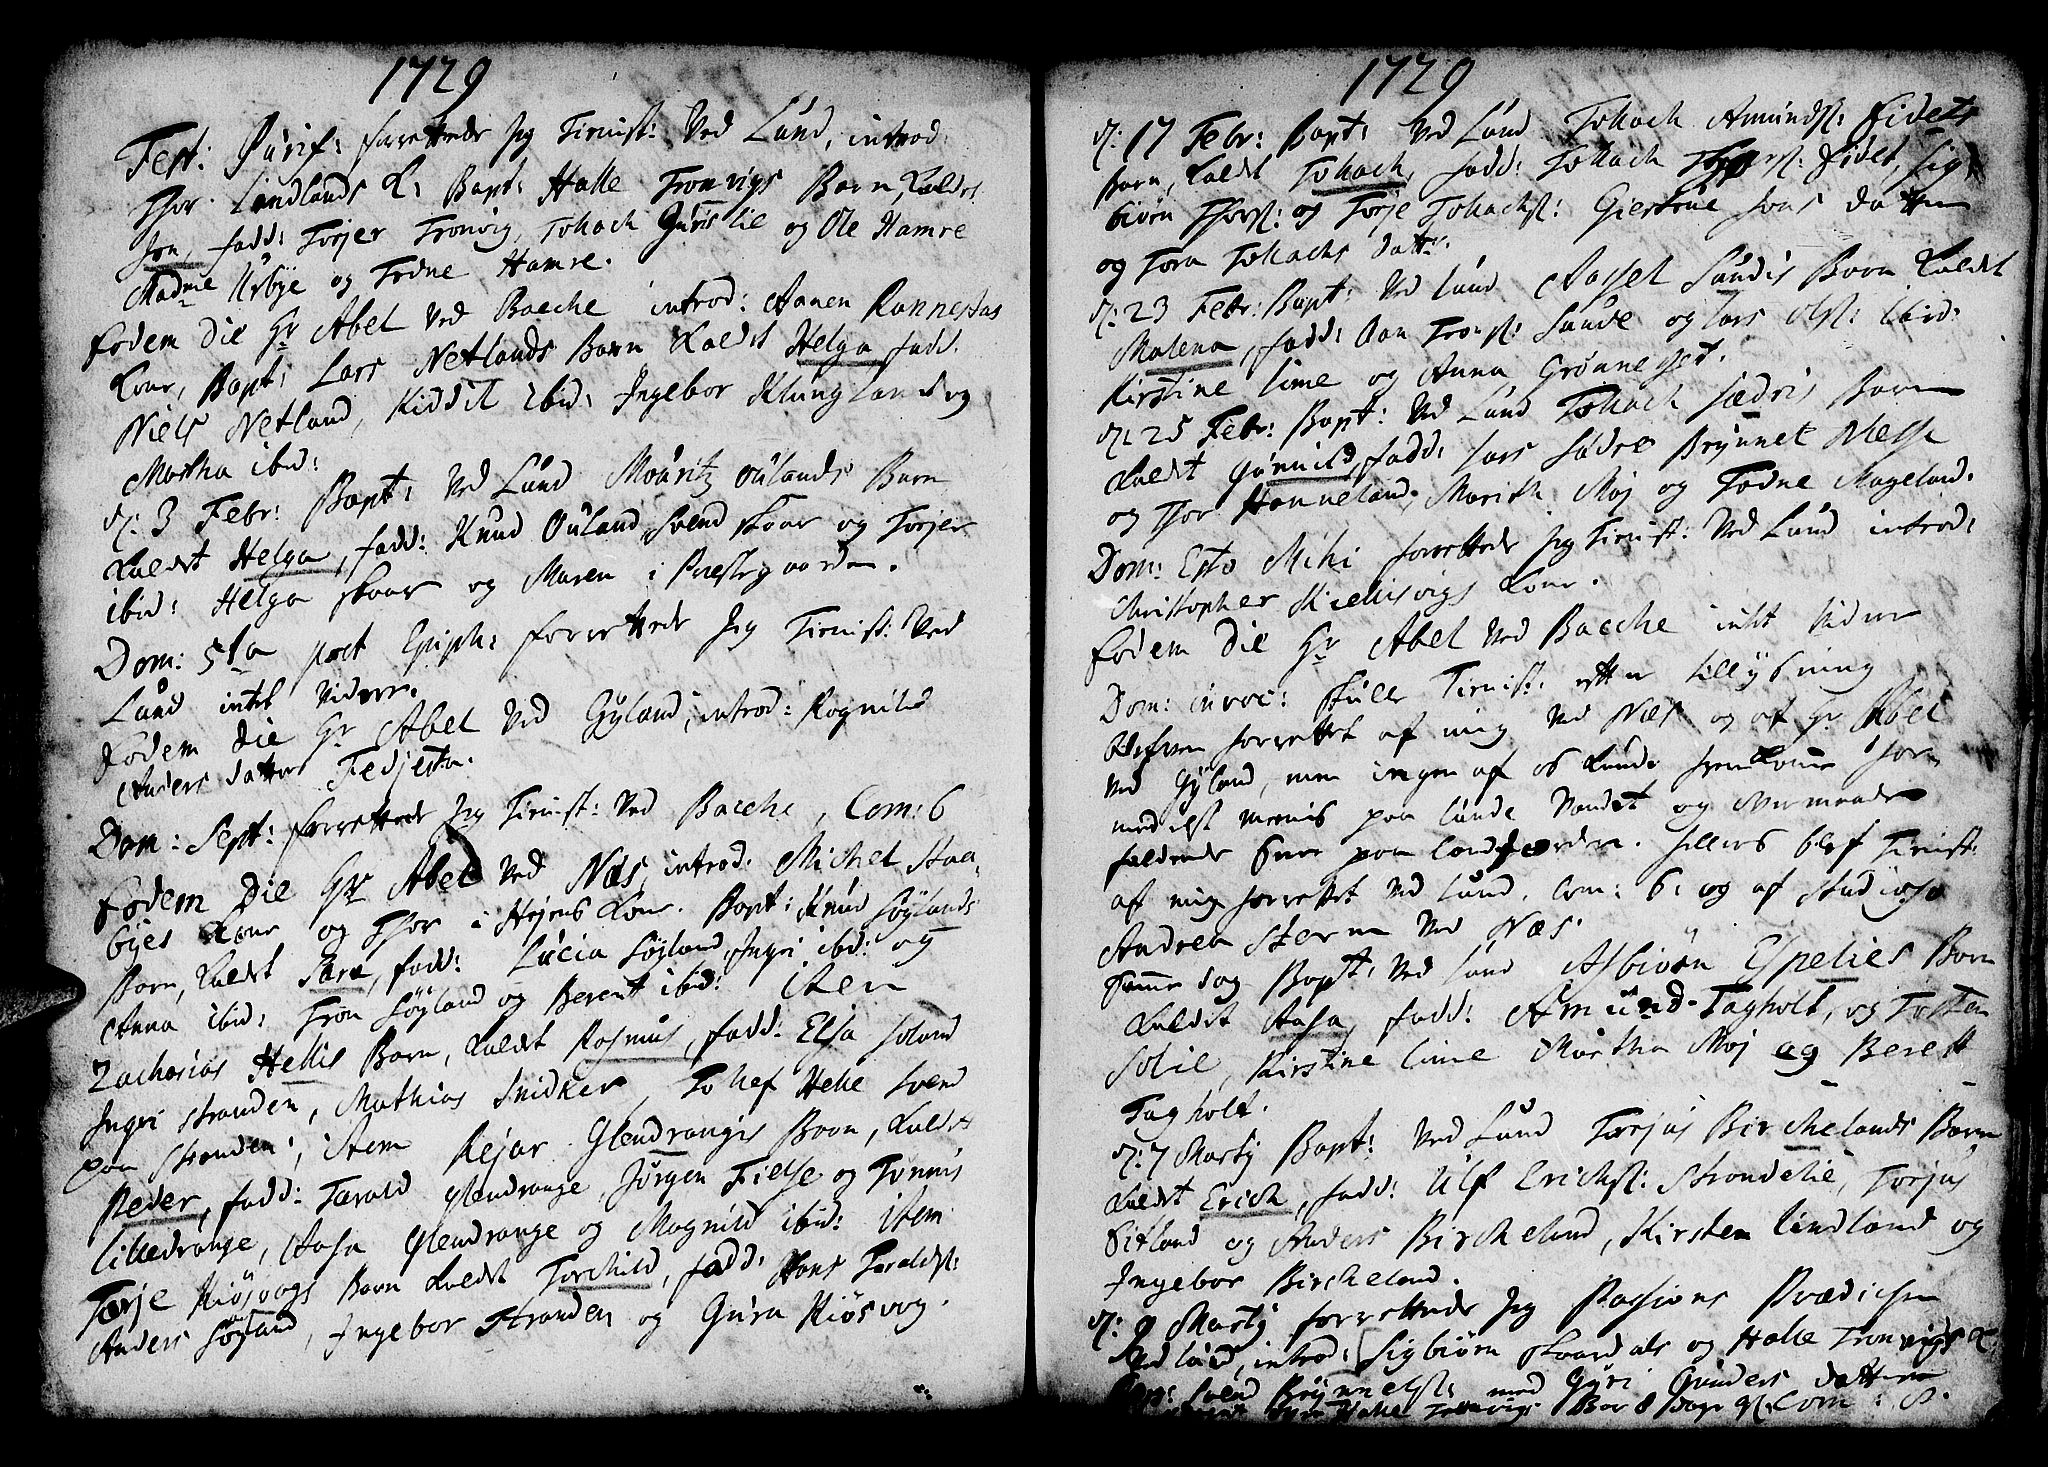 1729
Fest: Purif: forrettede Jeg Tienist: Ved Lund, introd:
Thor Lindlands K: Bapt: Halle Tronvigs Barn, Kaldet
Jon, fadd: Torjer Tronvig, Tollach Guris lie og Ole Hamre
Madme Urbye og Trone Hamre.
Eodem Die Hr Abel Ved Bacche introd: Aanen Rannestas
Kone, Bapt: Lars Netlands Barn Kaldet Helga fadd.
Niels Netland, Kiddil ibid: Ingebor Klungland og
Martha ibid:
d: 3 Febr: Bapt: Ved Lund Mouritz Oulands Barn
Kaldet Helga, fadd: Knud Ouland Svend Skaar og Torjer
ibid: Helga Skaar og Maren i Prestegaarden.
Dom: 5ta post Epiph: forrettede Jeg Tienist: Ved
Lund intet videre.
Eodem Die Hr Abel Ved Gyland, introd: Rognild
Anders datter Fedjesta.
Dom: Sept: forrettede Jeg Tienist: Ved Bacche, Com: 6
Eodem Die Hr Abel Ved Næs, introd. Michel Staa-
byes Kone og Thor i Hejens Kone. Bapt: Knud Søylands
Barn, Kaldet Sara, fadd: Lucia Søyland, Ingri ibid: og
Anna ibid: Tron Søyland og Berent ibid: Item
Zacharias Hellis Barn, Kaldet Rasmus, fadd: Elsa Soland
Ingri Stranden, Mathias Snidker, Tollef Helle Svend
paa Stranden, Item Rejar Glendrangis Barn, Kaldet
Peder, fadd: Tarald Glendrange, Jørgen Fielse og Tønnis
Lilledrange, Aasa Glendrange og Magnild ibid: Item
Torje Kiøsvogs Barn Kaldet Torchild, fadd: Hans Taraldss:
Anders Søyland, Ingebor Stranden og Gura Kiøsvog.
1729
d: 17 Febr: Bapt: Ved Lund Tollach Amunds: Eidets
barn, Kaldet Tollach, fadd: Tollach Eidet, Sig-
biørn Thors: og Torje Tollachs: Giertrue Jons datter
og Tora Tollachs datter.
d: 23 Febr: Bapt: Ved Lund Aassel Sundis Barn Kaldet
Malena, fadd: Aan Trons: Sunde og Lars Ols: ibid:
Kirstine Lime og Anna Grønneset.
d: 25 Febr: Bapt: Ved Lund Tollach Sædris Barn
Kaldet Gunnild, fadd: Lars Sædre Brynnel Nesse
og Thor Hanneland, Marith Moj og Todne Mageland.
Dom: Esto Mihi forrettede Jeg Tienist: Ved Lund introd:
Christopher Kiellisvigs Kone.
Eodem Die Hr Abel Ved Bacche intet videre
Dom: invoc: skulle Tienist: efter tillysning
blefven forrettet af mig Ved Næs og af Hr Abel
Ved Gyland, men ingen af os kunde fremkomme for-
medelst meenis paa Lunde Vandet og
faldende Snee paa Landjorden. Ellers blef Tienist:
af mig forrettet Ved Lund, Com: 6: og af Studioso
Andrea Sterm Ved Næs.
Samme dag Bapt: Ved Lund Asbiørn Espelies Barn
Kaldet Aasa, fadd: Amund Tagholt, og Tosten
Solie, Kirstine Lime Martha Moj og Berett
Tagholt.
d: 7 Martij Bapt: Ved Lund Torjus Birchelands Barn
Kaldet Erich, fadd: Ulf Erichs: Strondelie, Torjus
Eitland og Anders Bircheland, Kirsten Lindland og
Ingebor Bircheland.
d: 9 Martij forrettede Jeg Passions Prædichen
Ved Lund, introd: Sigbiørn Skaardals og Halle Tronvigs K:
Svend Brynnels: med Gyri Gunders datter
Halle Tronvigs Com: 8